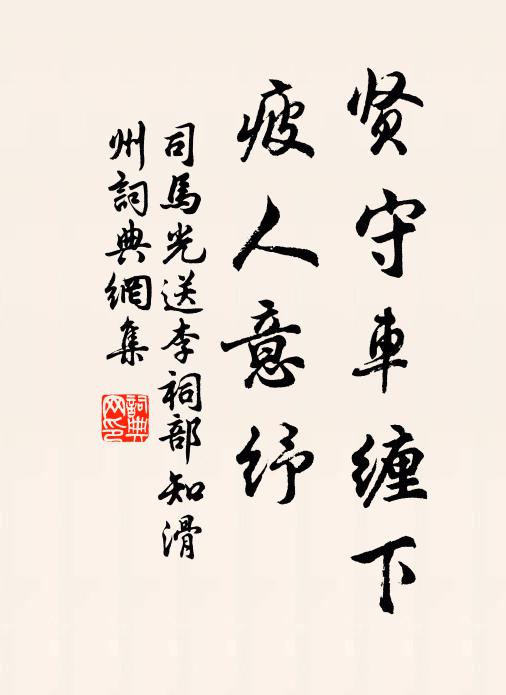 贤守車缠下
疲人意纾
司馬光送李祠部知滑
州詞典網集
詞典網印